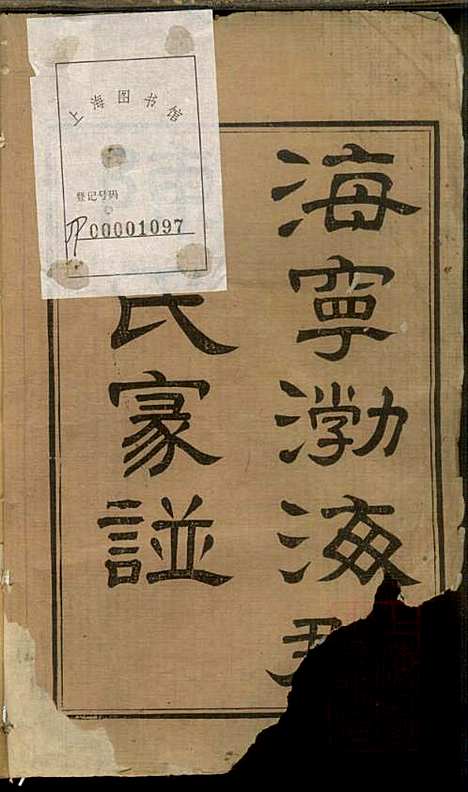 上海图书馆
登记号码
JP00001097
海寧渤海郡
氏家諩